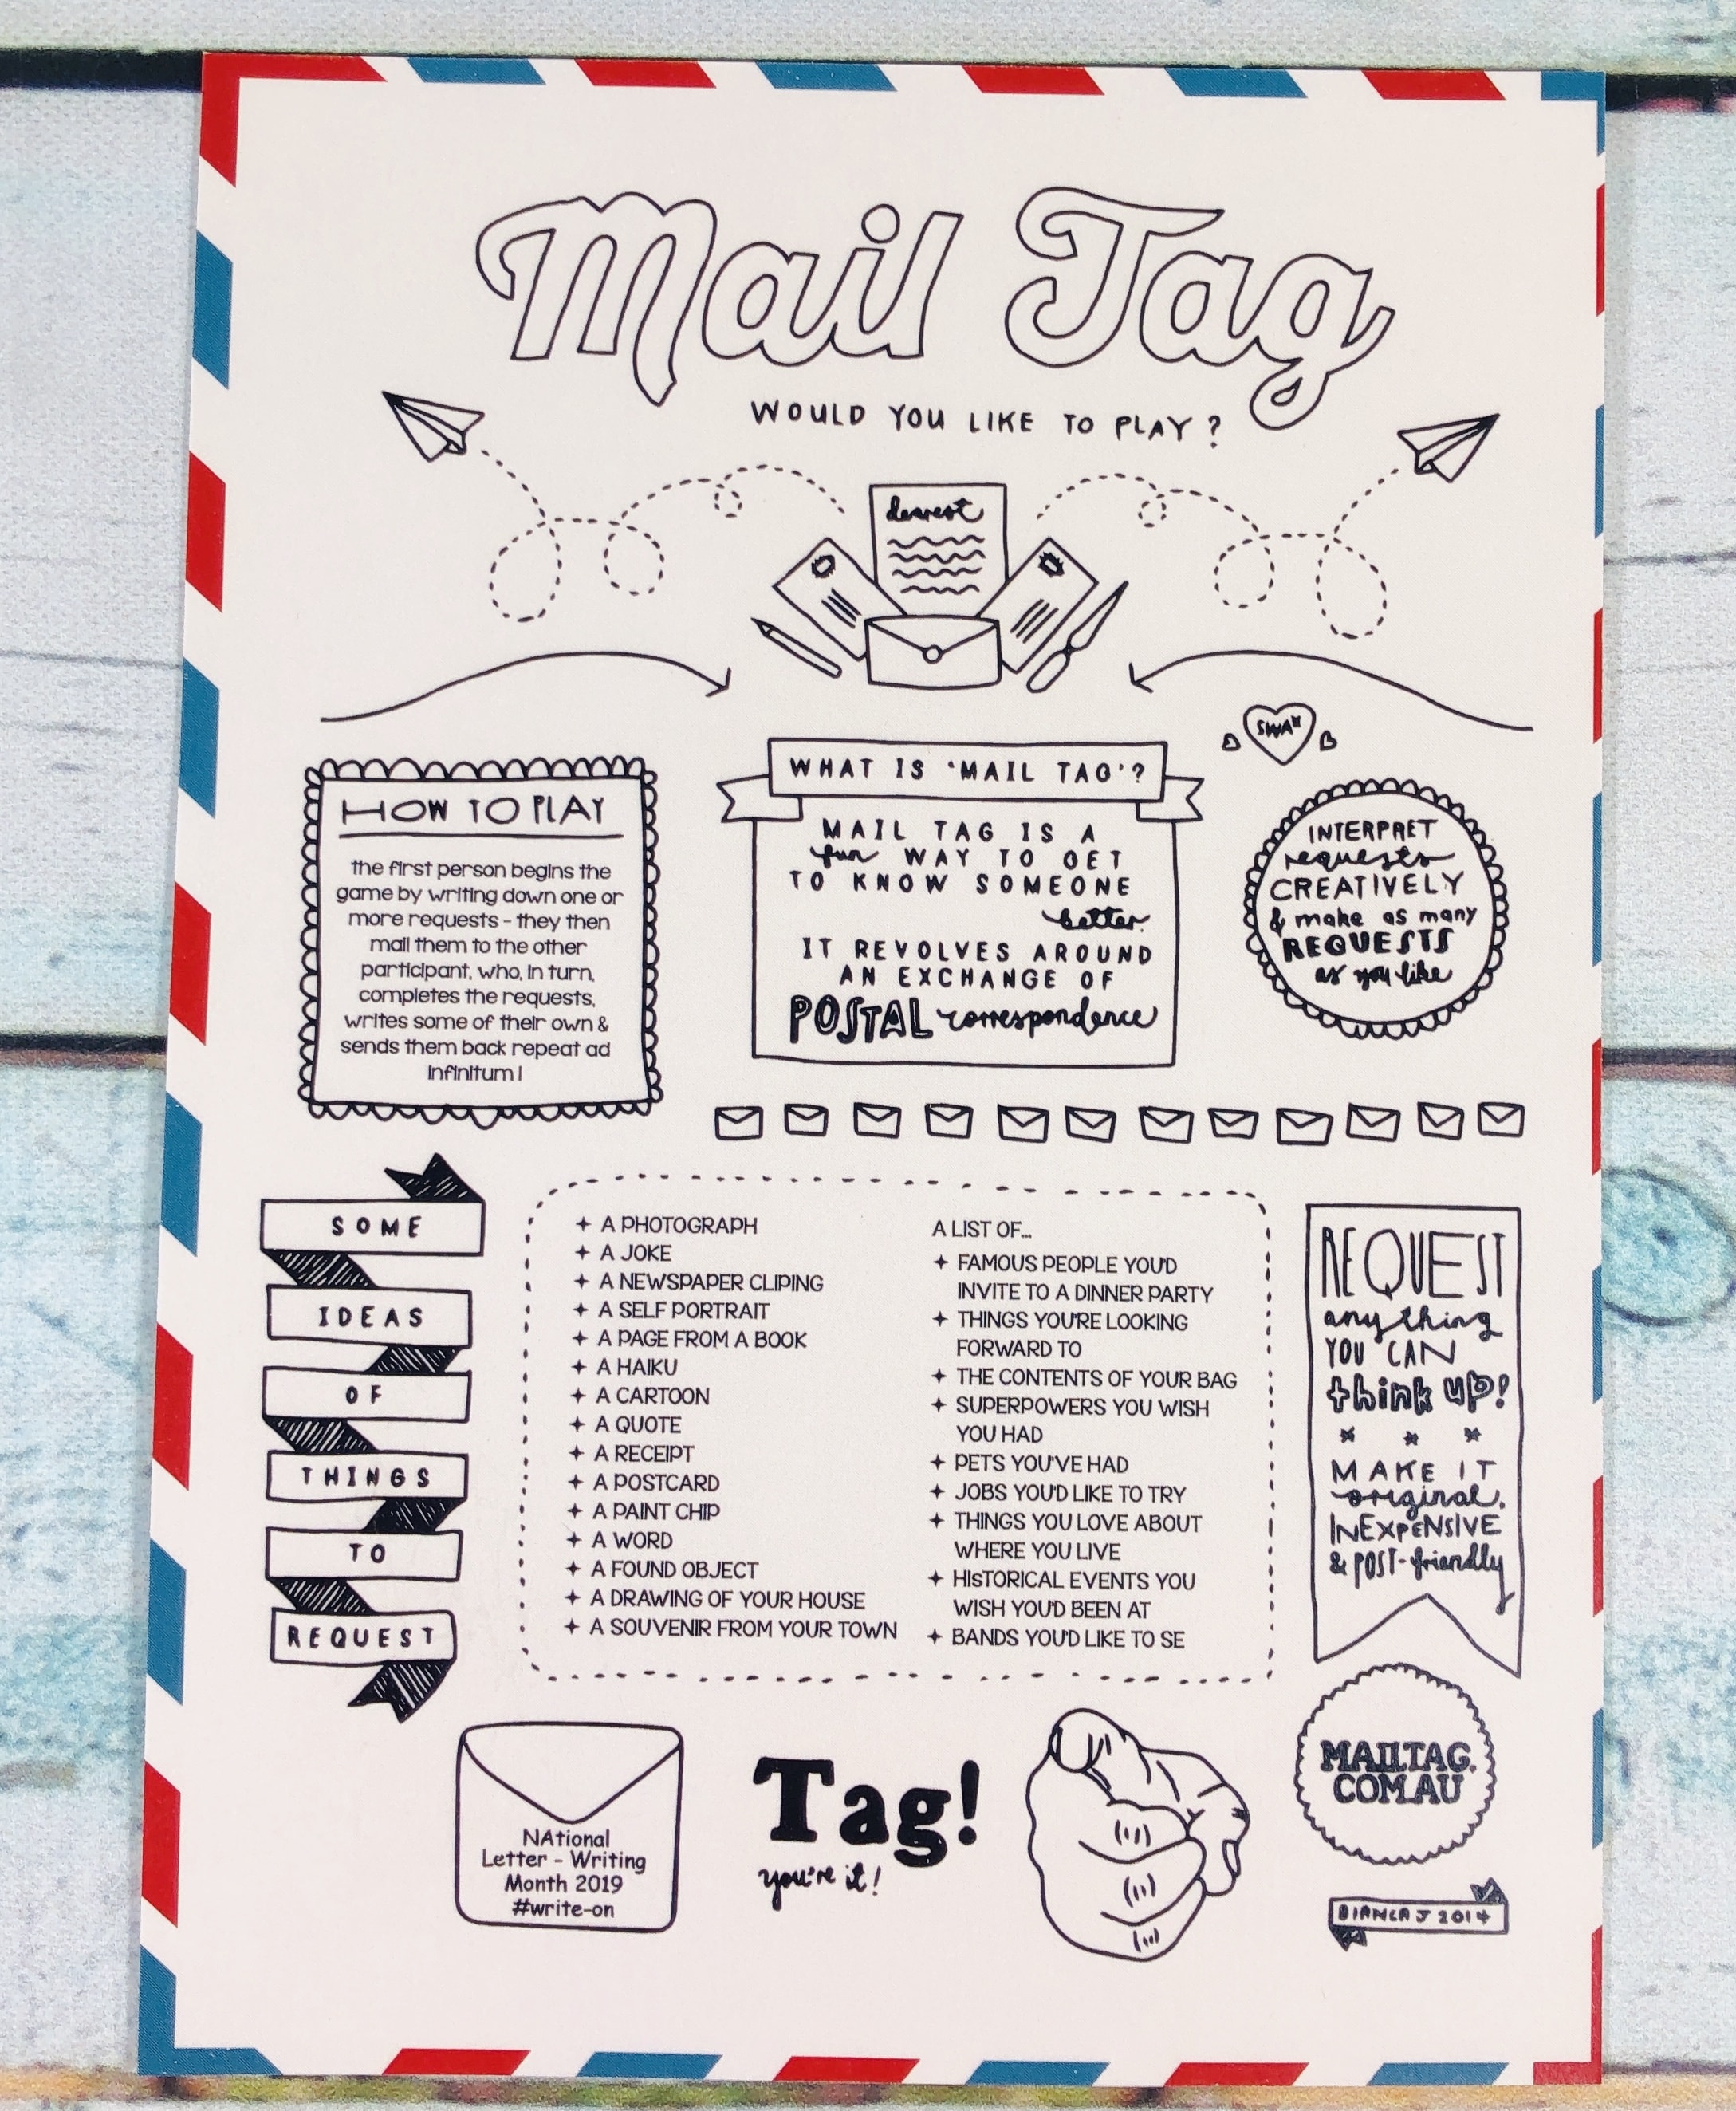 Mail Tag
WOULD YOU LIKE TO PLAY?
dearest
SWAK
HOW TO PLAY
the first person begins the
game by writing down one or
more requests - they then
mail them to the other
participant, who, in turn,
completes the requests,
writes some of their own &
sends them back repeat ad
infinitum!
WHAT IS 'MAIL TAG'?
MAIL TAG IS A
fun WAY TO GET
TO KNOW SOMEONE
better.
IT REVOLVES AROUND
AN EXCHANGE OF
POSTAL correspondence
INTERPRET
requests
CREATIVELY
& make as many
REQUESTS
as you like
SOME
IDEAS
OF
THINGS
TO
REQUEST
A PHOTOGRAPH
A JOKE
A NEWSPAPER CLIPING
A SELF PORTRAIT
A PAGE FROM A BOOK
A HAIKU
A CARTOON
A QUOTE
A RECEIPT
A POSTCARD
A PAINT CHIP
A WORD
A FOUND OBJECT
A DRAWING OF YOUR HOUSE
A SOUVENIR FROM YOUR TOWN
A LIST OF...
FAMOUS PEOPLE YOU'D
INVITE TO A DINNER PARTY
THINGS YOU'RE LOOKING
FORWARD TO
THE CONTENTS OF YOUR BAG
SUPERPOWERS YOU WISH
YOU HAD
PETS YOU'VE HAD
JOBS YOU'D LIKE TO TRY
THINGS YOU LOVE ABOUT
WHERE YOU LIVE
HIsTORICAL EVENTS YOU
WISH YOU'D BEEN AT
BANDS YOU'D LIKE TO SE
REQUEST
anything
YOU CAN
think up!
MAKE IT
original,
INEXPENSIVE
& POST-friendly
NAtional
Letter - Writing
Month 2019
#write-on
Tag!
you're it!
MAILTAG.
COM.AU
BIANCA J 2014